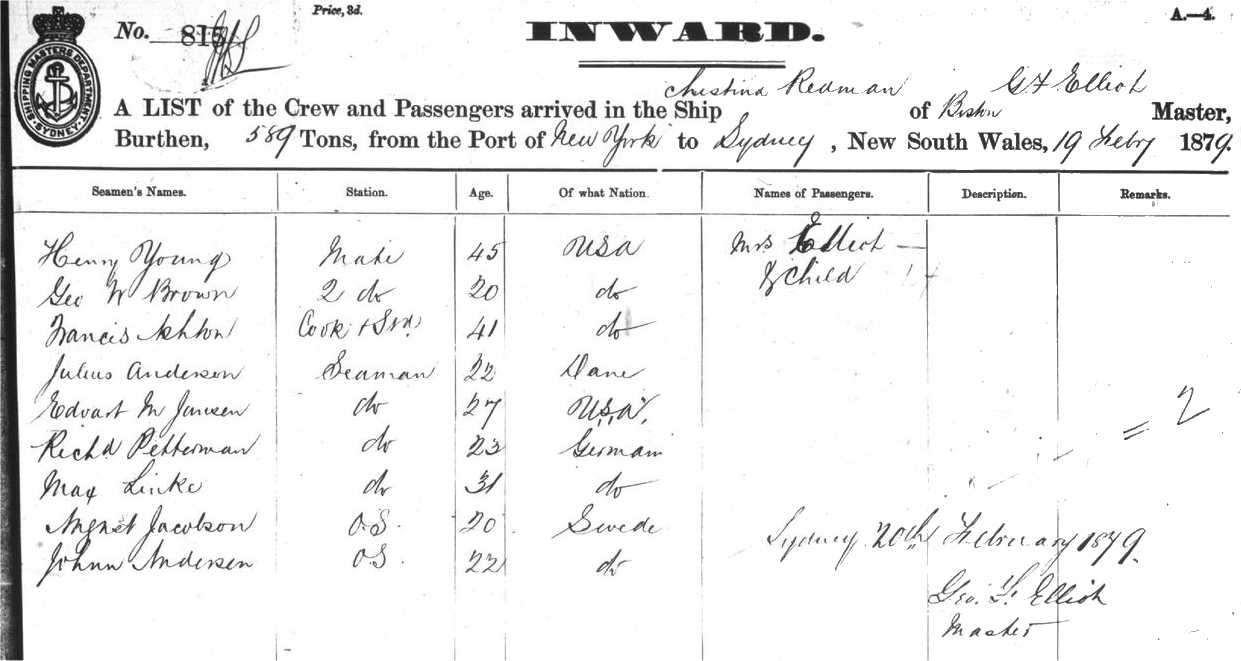 Price, 3d.
A.—4.
No. 815
INWARD.
SHIPPING MASTERS DEPARTMENT SYDNEY
Christina Redman G F Elliot
A LIST of the Crew and Passengers arrived in the Ship of Boston Master,
Burthen, 589 Tons, from the Port of New York to Sydney, New South Wales, 19 Febry 1879.
Seamen's Names. Station. Age. Of what Nation Names of Passengers. Description. Remarks.
Henry Young Mate 45 USA Mrs Elliot —
Geo W Brown 2 do 20 do & Child
Francis Ashton Cook & Swd 41 do
Julius Anderson Seaman 22 Dane
Edvart M Jansen do 27 USA
Richd Petterman do 23 German
= 2
Max Linke do 31 do
August Jacobson O.S. 20 Swede
Johnn Andersen O.S. 22 do
Sydney 20th February 1879.
Geo. F. Elliot
Master